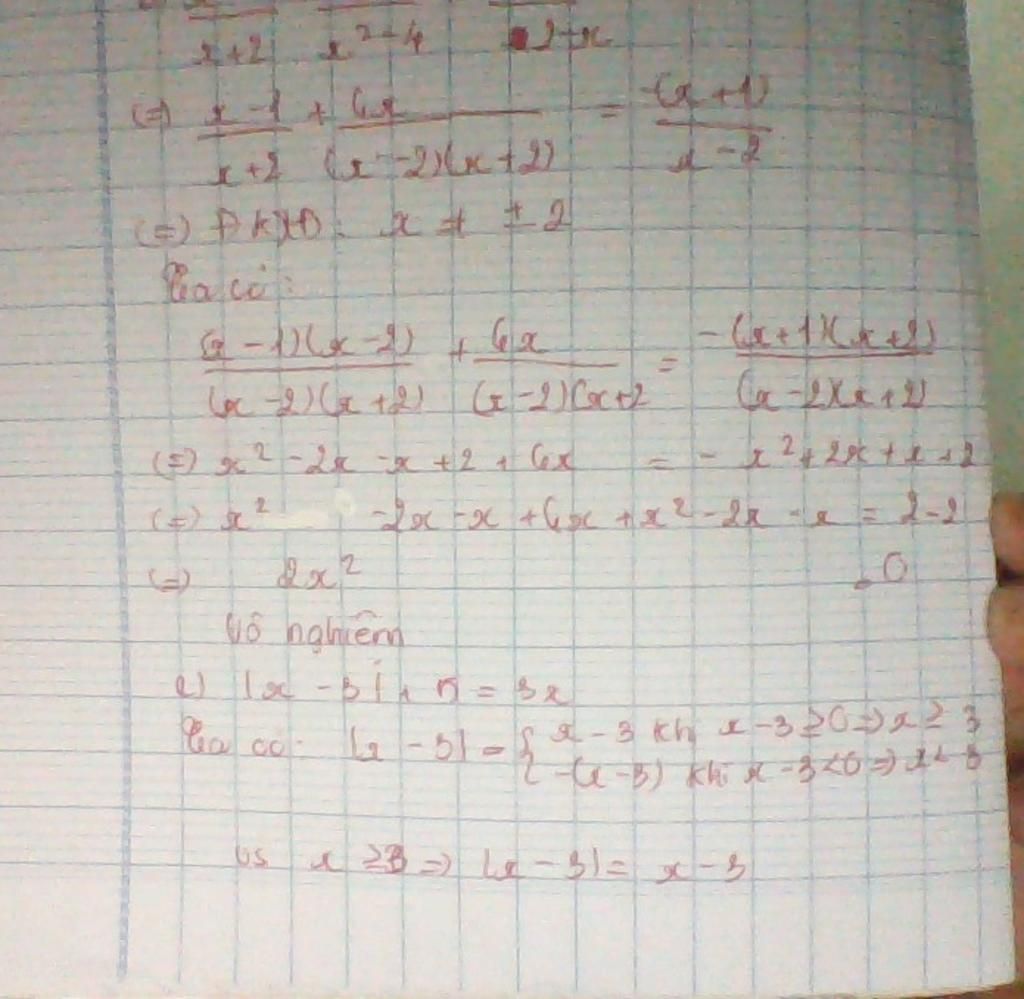 x+2 x²-4 2-x
(=) x-1/x+2 + 6x/(x-2)(x+2) = -(x+1)/x-2
(=) ĐKXĐ: x ≠ ± 2
Ta có:
(x-1)(x-2)/(x-2)(x+2) + 6x/(x-2)(x+2 = -(x+1)(x+2)/(x-2)(x+2)
(=) x² -2x -x +2 + 6x = - x² + 2x + x + 2
(=) x² -2x -x + 6x + x² -2x -x = 2-2
(=) 2x² = 0
Vô nghiệm
|x - 3| + = 3x
Ta có: |x - 3| = { x - 3 khi x - 3 ≥ 0 => x ≥ 3
{ -(x-3) khi x - 3 < 0 => x < 3
x ≥ 3 => |x - 3| = x - 3